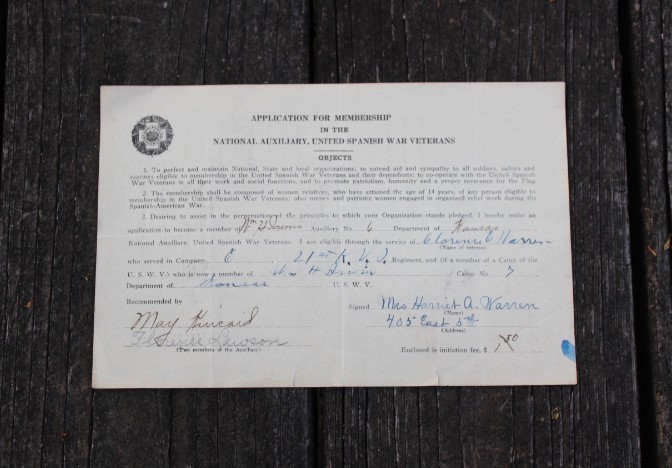 APPLICATION FOR MEMBERSHIP
IN THE
NATIONAL AUXILIARY, UNITED SPANISH WAR VETERANS
OBJECTS
1. To perfect and maintain National, State and local organizations; to extend aid and sympathy to all soldiers, sailors and
marines eligible to membership in the United Spanish War Veterans and their dependents; to co-operate with the United Spanish
War Veterans in all their work and social functions, and to promote patriotism, humanity and a proper reverence for the Flag
2. The membership shall be composed of women relatives, who have attained the age of 14 years, of any person eligible to
membership in the United Spanish War Veterans; also nurses and patriotic women engaged in organized relief work during the
Spanish-American War.
3. Desiring to assist in the perpetuation of the principles to which your Organization stands pledged, I hereby make an
application to become a member of Wm H Auxiliary No. 6 Department of Kansas
National Auxiliary, United Spanish War Veterans. I am eligible through the service of Clarence C Warren
(Name of veteran)
who served in Company E 21st K. V. I. Regiment, and (if a member of a Camp of the
U. S. W. V.) who is now a member of Wm H Camp No. 7
Department of Kansas U. S. W. V.
Recommended by
Signed Mrs Harriet A. Warren
(Name)
May Kincaid
405 East 5th
(Address)
Florence Lawson
(Two members of the Auxiliary)
Enclosed is initiation fee, $ 1.50